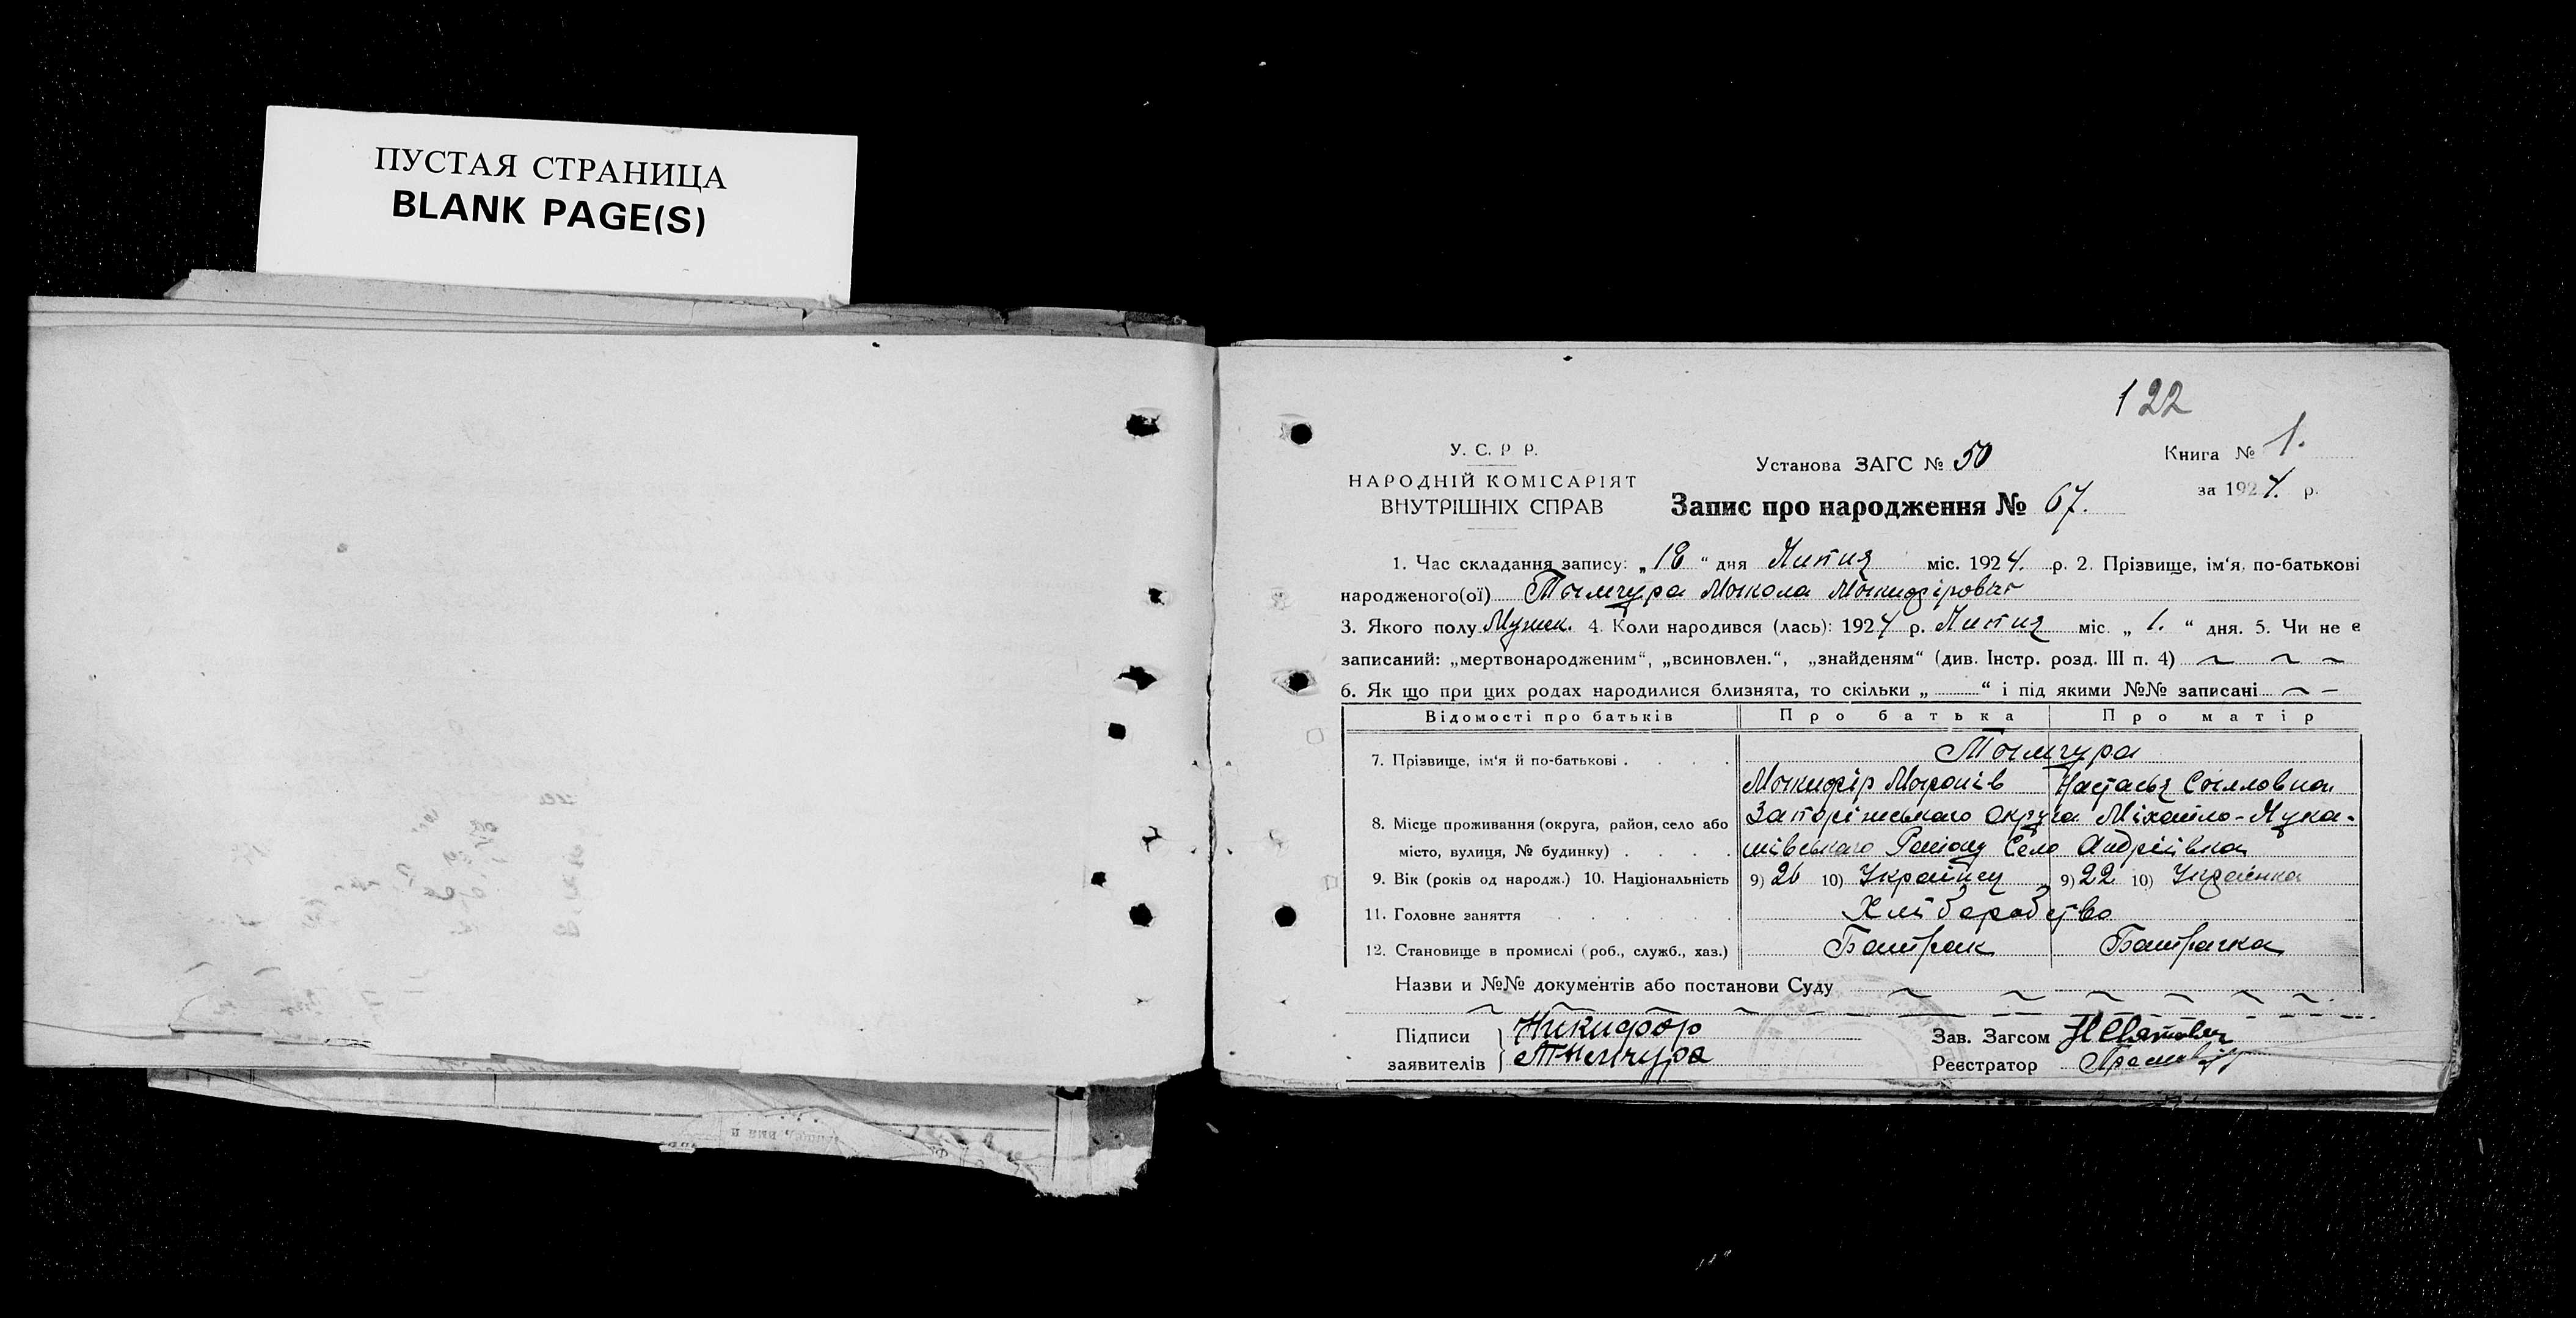 ПУСТАЯ СТРАНИЦА
BLANK PAGE(S)
122
У. С. Р Р.
НАРОДНІЙ КОМІСАРІЯТ
ВНУТРІШНІХ СПРАВ
Установа ЗАГС № 50
Книга № 1.
за 1924. р.
Запис про народження № 67.
1. Час складання запису: „18“ дня Липня міс. 1924. р. 2. Прізвище, ім'я, по-батькові
народженого(ої) Тымчура Мыкола Мыкифірович
3. Якого полу Мужск. 4. Коли народився (лась): 1924 р. Липня міс. „1.“ дня. 5. Чи не є
записаний: „мертвонародженим“, „всиновлен.“, „знайденям“ (див. Інстр. розд. III п. 4) ~ ~ ~
6. Як що при цих родах народилися близнята, то скільки „ “ і під якими №№ записані ~ –
Відомості про батьків Про батька Про матір
7. Прізвище, ім'я й по-батькові . . . . Тымчура
Мыкифір Миронів Настасья
8. Місце проживання (округа, район, село або Запоріжського Округа Міхайло-Лука-
місто, вулиця, № будинку) . . . . шівського Району Село Андріївка
9. Вік (років од народж.) 10. Національність 9) 26 10) Українец 9) 22 10) Українка
11. Головне заняття . . . . . Хліборобство
12. Становище в промислі (роб., служб., хаз.) Батрак Батрачка
Назви и №№ документів або постанови Суду ~ ~ ~ ~ ~ ~
Підписи Никифор
заявителів Тимчура
Зав. Загсом
Реєстратор